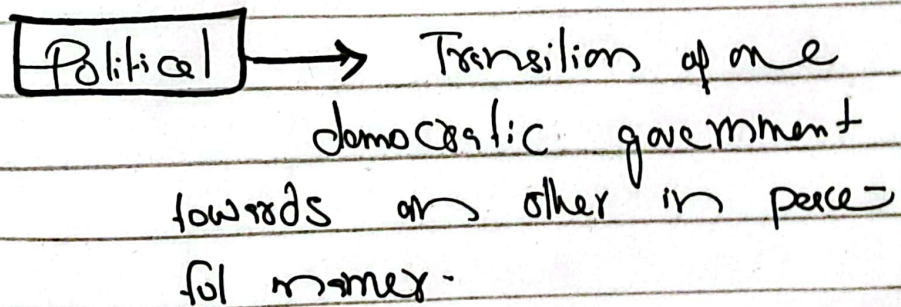 Political → Transition of one
democratic government
towards an other in peace-
ful manner.